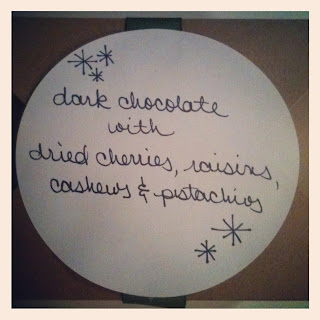 dark chocolate
with
dried cherries, raisins,
cashews & pistachios